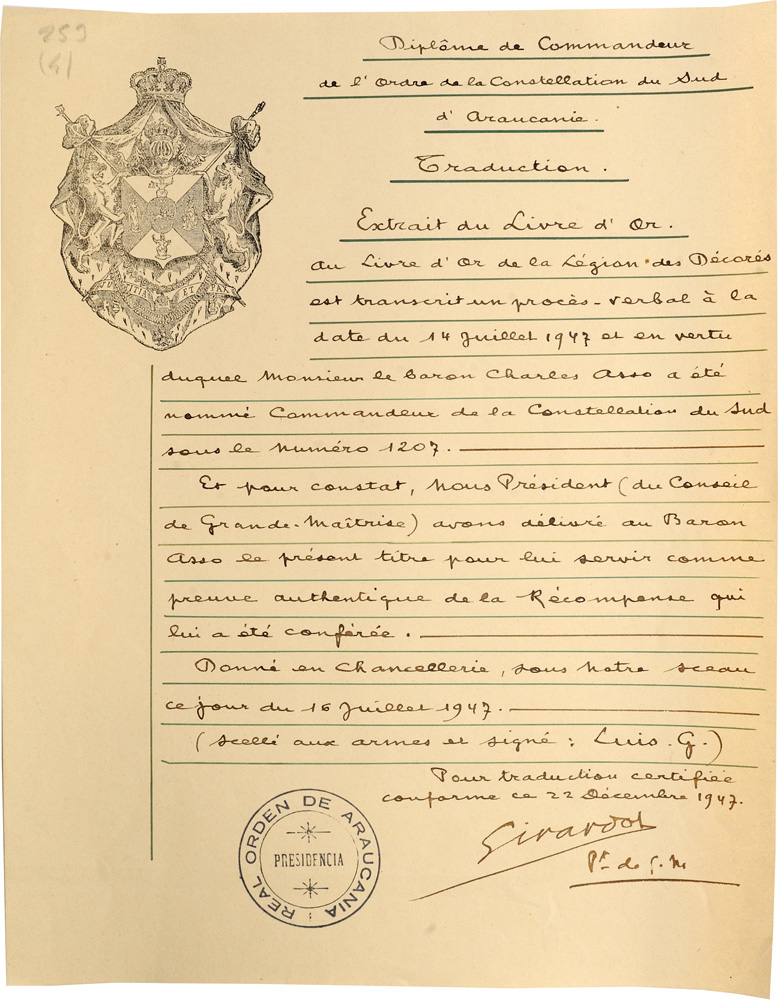 259
(4)
Diplôme de Commandeur
de l'Ordre de la Constellation du Sud
d'Araucanie.
Traduction.
Extrait du Livre d'Or.
Au Livre d'Or de la Légion des Décorés
est transcrit un procès-verbal à la
date du 14 Juillet 1947 et en vertu
duquel Monsieur le Baron Charles Asso a été
nommé Commandeur de la Constellation du Sud
sous le Numéro 1207.
Et pour constat, Nous Président (du Conseil
de Grande-Maîtrise) avons délivré au Baron
Asso le présent titre pour lui servir comme
preuve authentique de la Récompense qui
lui a été conférée.
Donné en Chancellerie, sous Notre sceau
ce jour du 16 Juillet 1947.
(scellé aux armes et signé : Luis. G.)
Pour traduction certifiée
conforme ce 22 Décembre 1947.
Girardot
Pt de G. M
REAL ORDEN DE ARAUCANIA
PRESIDENCIA
ET PAX